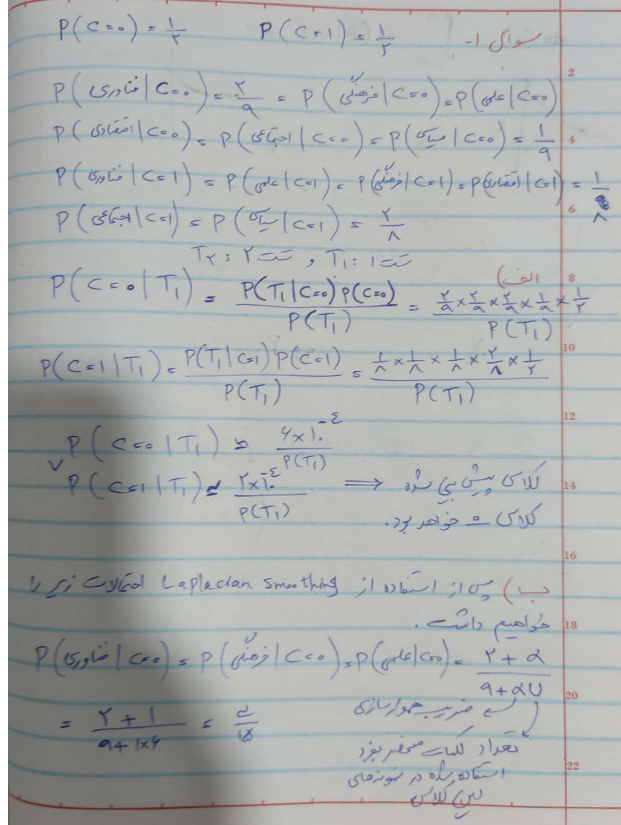 سوال ۱-
P(C=0) = ۱/۲   P(C=1) = ۱/۲
P(فناوری|C=0) = ۲/۹ = P(فرهنگی|C=0) = P(علمی|C=0)
P(اقتصادی|C=0) = P(اجتماعی|C=0) = P(سیاسی|C=0) = ۱/۹
P(فناوری|C=1) = P(علمی|C=1) = P(فرهنگی|C=1) = P(اقتصادی|C=1) = ۱/۸
P(اجتماعی|C=1) = P(سیاسی|C=1) = ۲/۸
تست ۱: T₁ , تست ۲: T₂
الف)
P(C=0|T₁) = P(T₁|C=0)P(C=0) / P(T₁) = ۲/۹ × ۲/۹ × ۲/۹ × ۱/۹ × ۱/۲ / P(T₁)
P(C=1|T₁) = P(T₁|C=1)P(C=1) / P(T₁) = ۱/۸ × ۱/۸ × ۱/۸ × ۲/۸ × ۱/۲ / P(T₁)
P(C=0|T₁) ≃ ۶×۱۰^-۴ / P(T₁)
P(C=1|T₁) ≃ ۲×۱۰^-۴ / P(T₁) ⟹ کلاس پیش بینی شده
کلاس ۰ خواهد بود.
ب) پس از استفاده از Laplacian Smoothing احتمالات زیر را
خواهیم داشت.
P(فناوری|C=0) = P(فرهنگی|C=0) = P(علمی|C=0) = ۲+α / ۹+αU
ضریب هموارسازی
= ۲+۱ / ۹+۱×۶ = ۳/۱۵
تعداد کلمات منحصر بفرد
استفاده شده در نمونه‌های
این کلاس
2
4
6
8
10
12
14
16
18
20
22